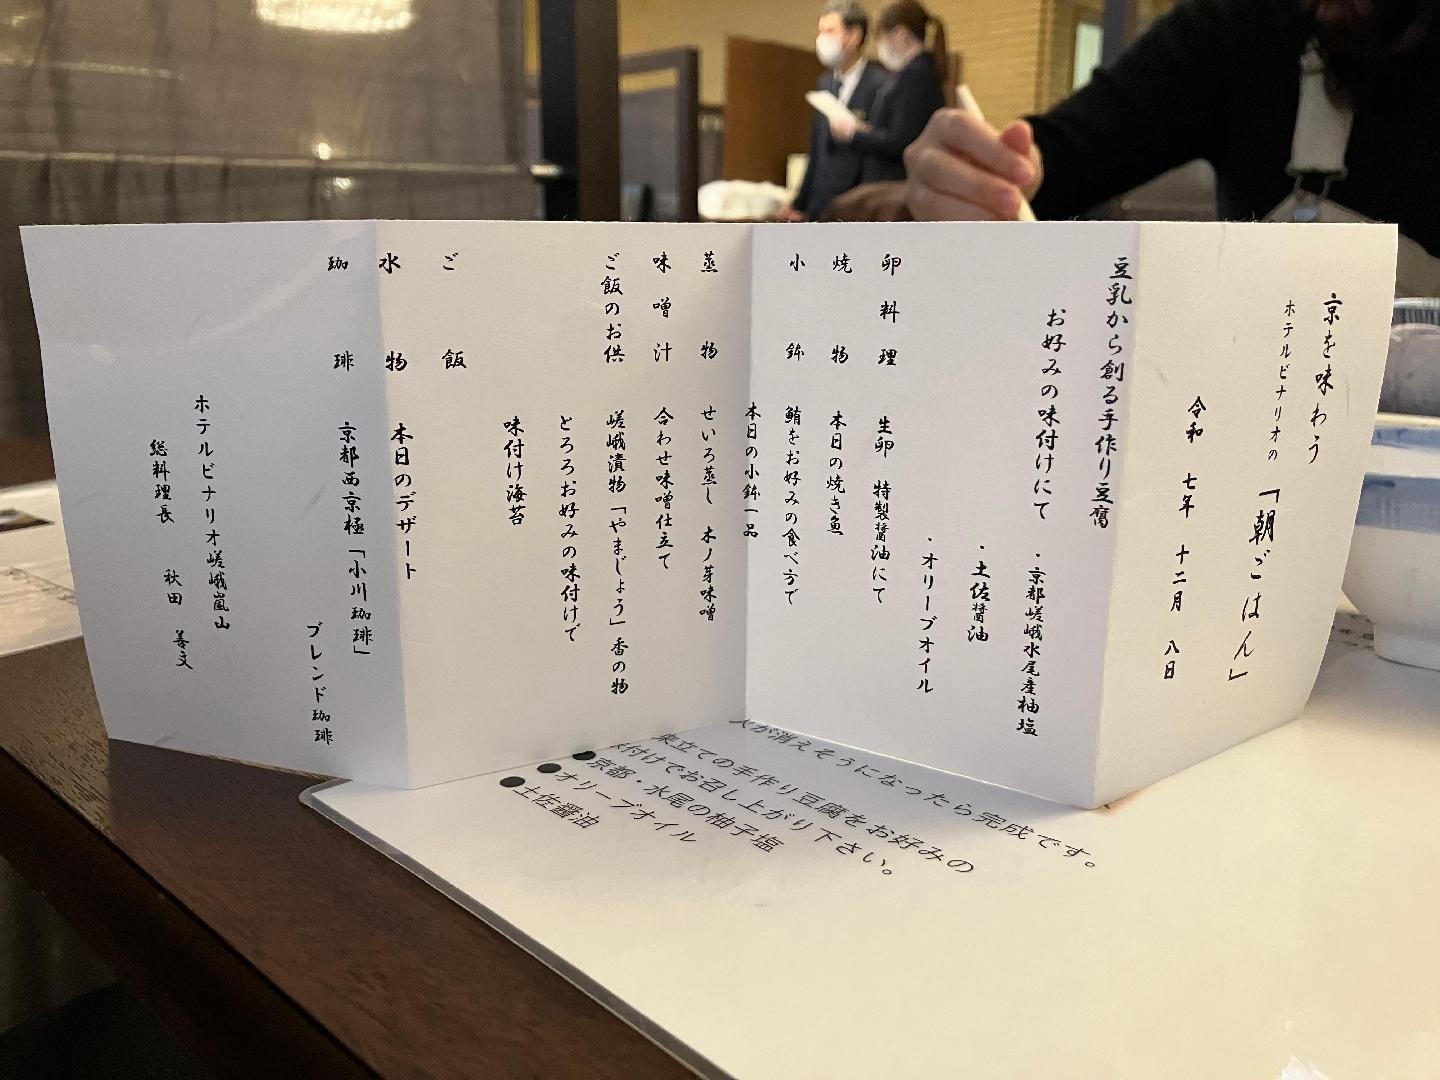 京を味わう
ホテルビナリオの
「朝ごはん」
令和 七年 十二月 八日
豆乳から創る手作り豆腐
お好みの味付けにて
・京都嵯峨水尾産柚塩
・土佐醤油
・オリーブオイル
卵料理 生卵 特製醤油にて
焼物 本日の焼き魚
小鉢 鮪をお好みの食べ方で
本日の小鉢一品
蒸物 せいろ蒸し 木ノ芽味噌
味噌汁 合わせ味噌仕立て
ご飯のお供 嵯峨漬物「やまじょう」香の物
とろろお好みの味付けで
味付け海苔
ご飯
水物 本日のデザート
珈琲 京都西京極「小川珈琲」
ブレンド珈琲
ホテルビナリオ嵯峨嵐山
総料理長 秋田 善文
が消えそうになったら完成です。
来立ての手作り豆腐をお好みの
付けでお召し上がり下さい。
●京都・水尾の柚子塩
●オリーブオイル
●土佐醤油